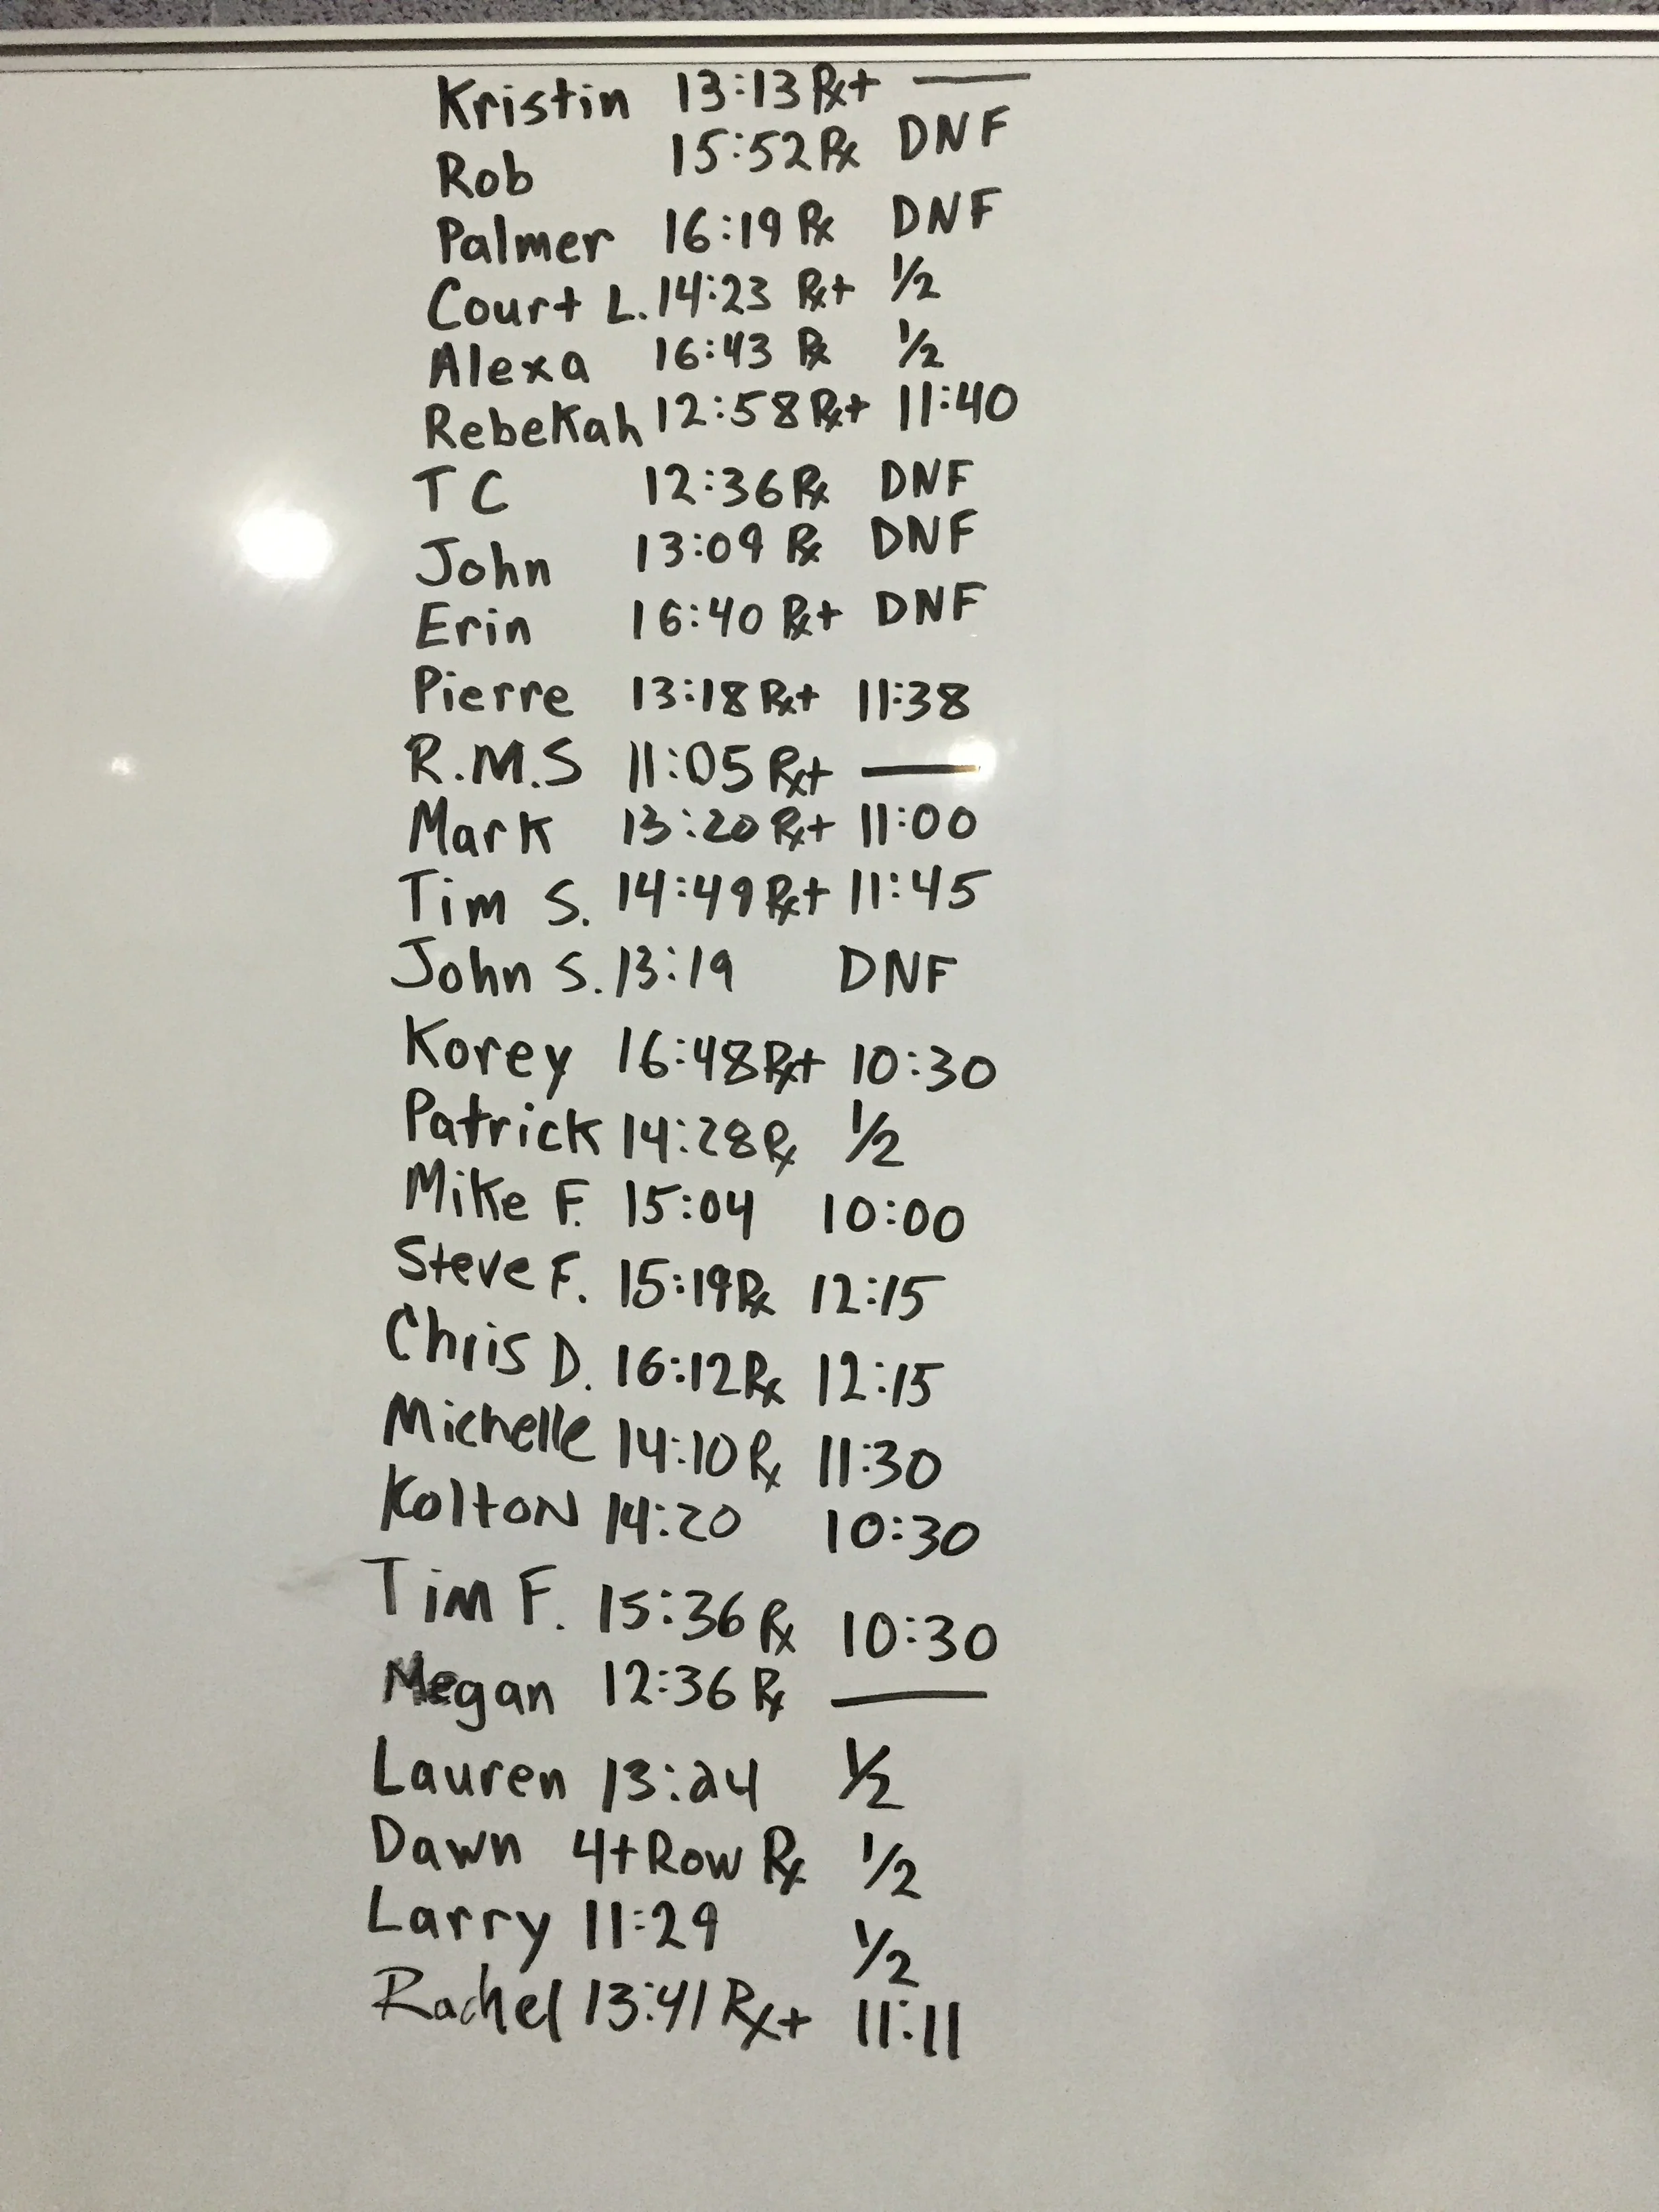 Kristin 13:13 Rx+ —
Rob 15:52 Rx DNF
Palmer 16:19 Rx DNF
Court L. 14:23 Rx+ 1/2
Alexa 16:43 Rx 1/2
Rebekah 12:58 Rx+ 11:40
TC 12:36 Rx DNF
John 13:09 Rx DNF
Erin 16:40 Rx+ DNF
Pierre 13:18 Rx+ 11:38
R.M.S 11:05 Rx+ —
Mark 13:20 Rx+ 11:00
Tim S. 14:49 Rx+ 11:45
John S. 13:19 DNF
Korey 16:48 Rx+ 10:30
Patrick 14:28 Rx 1/2
Mike F. 15:04 10:00
Steve F. 15:19 Rx 12:15
Chris D. 16:12 Rx 12:15
Michelle 14:10 Rx 11:30
Kolton 14:20 10:30
Tim F. 15:36 Rx 10:30
Megan 12:36 Rx —
Lauren 13:24 1/2
Dawn 4+Row Rx 1/2
Larry 11:29 1/2
Rachel 13:41 Rx+ 11:11